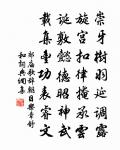 崇牙樹羽延調露
旋宮扣律掩承雲
誕敷懿德昭神武
載集豐功表睿文
郊廟歌辭朝日樂章舒
和詞典網集